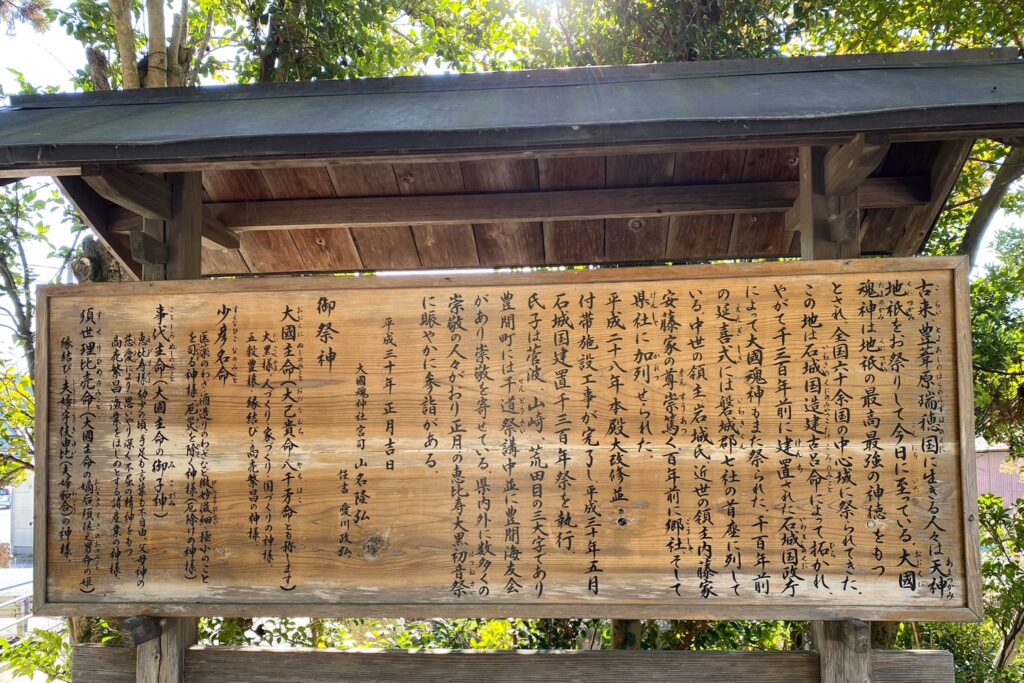 古来、豊葦原瑞穂国に生きる人々は天神
地祇をお祭りして今日に至っている。大國
魂神は地祇の最高最強の神徳をもつ
とされ、全国六十余国の中心域に祭られてきた。
この地は石城国造建古呂命によって拓かれ、
やがて千三百年前に建置された石城国政庁
によって大國魂神もまた祭られた。千百年前
の延喜式には磐城郡七社の首座に列して
いる。中世の領主岩城氏、近世の領主内藤家
安藤家の尊崇篤く百年前に郷社そして
県社に加列せられた。
平成二十八年本殿大改修並
付帯施設工事が完了し平成三十年五月
石城国建置千三百年祭を執行
氏子は菅波 山崎 荒田目の三大字であり
豊間町には千道祭講中並に豊間海友会
があり崇敬を寄せている。県内外に数多くの
崇敬の人々がおり正月の恵比寿大黒初音祭
に賑やかに参詣がある。
平成三十年 正月吉日
大國魂神社宮司 山名隆弘
謹書 愛川政弘
御祭神
大國主命(大己貴命八千矛命とも称します)
大黒様、人づくり家づくり国づくりの神様
五穀豊穣、縁結び、商売繁昌の神様
少彦名命
医薬のわざ、酒造りのわざなど微妙
を司る神様、厄災を除く神様(厄除の神様)
事代主命(大國主命の御子神)
恵比寿様、幼少の頃、手足も言葉も不自由、父母神の
慈愛により思いやり深く不屈の精神をもつ、
商売繁昌、漁業をはじめとする諸産業の神様
須世理比売命(大國主命の嫡后須佐之男命の姫)
縁結び、夫婦守護(夫婦和合)の神様